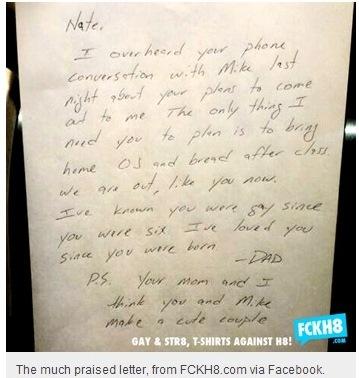 Nate,
I overheard your phone
conversation with Mike last
night about your plans to come
out to me The only thing I
need you to plan is to bring
home OJ and bread after class.
We are out, like you now.
I've known you were gay since
you were six I've loved you
since you were born
-DAD
P.S. Your mom and I
think you and Mike
make a cute couple
FCKH8
.COM
GAY & STR8, T-SHIRTS AGAINST H8!
The much praised letter, from FCKH8.com via Facebook.